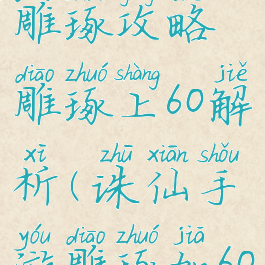 雕琢攻略
diāo zhuó shàng jiě
雕琢上60解
xī zhū xiān shǒu
析(诛仙手
yóu diāo zhuó jiā
游雕琢加60